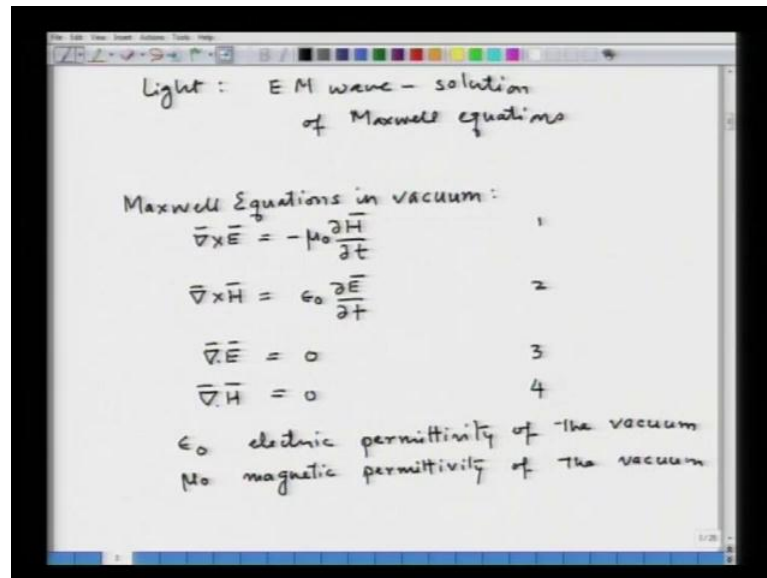 File Edit View Insert Actions Tools Help
Light : EM wave – solution
of Maxwell equations
Maxwell Equations in vacuum:
∇̄×Ē = -μ₀ ∂H̄/∂t 1
∇̄×H̄ = ε₀ ∂Ē/∂t 2
∇̄.Ē = 0 3
∇̄.H̄ = 0 4
ε₀ electric permittivity of the vacuum
μ₀ magnetic permittivity of the vacuum